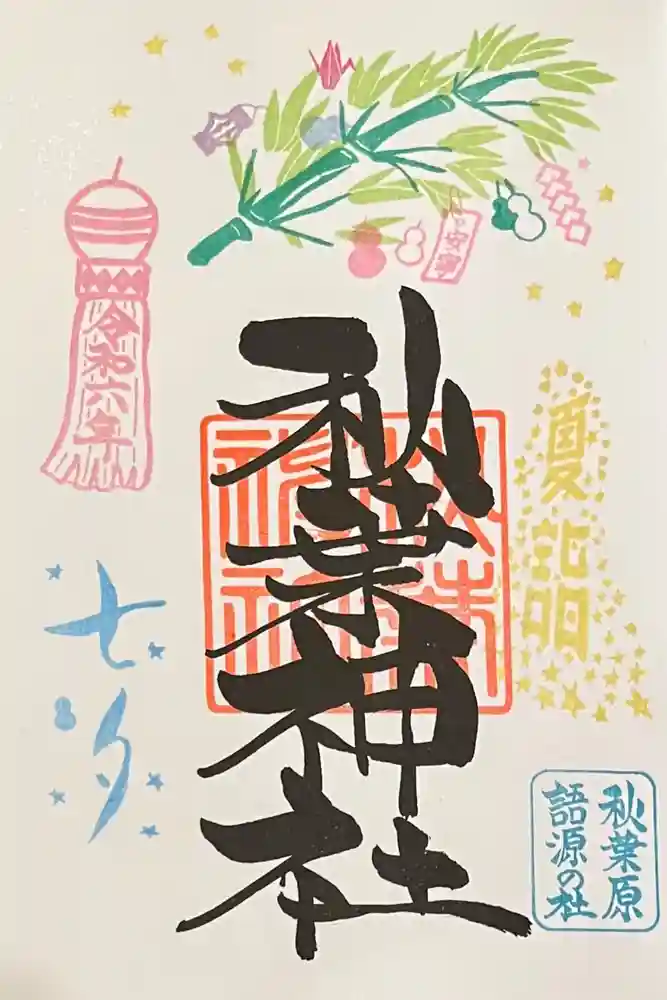 安寧
夏詣
秋葉神社
秋葉神社
令和六年
七夕
秋葉原
語源の社